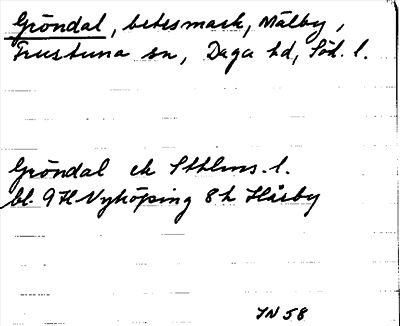 Gröndal, betesmark, Målby,
Frustuna sn, Daga hd, Söd. l.
Gröndal ek Sthlms. l.
bl. 9H Nyköping 8h Håsby
YN 58